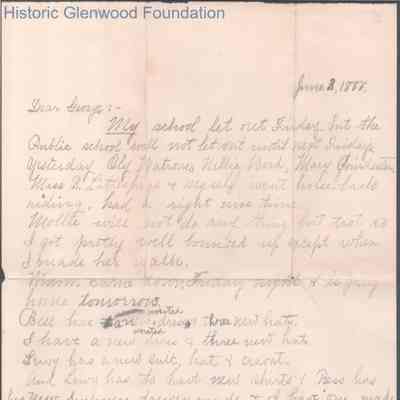 Historic Glenwood Foundation
June 3, 1888.
Dear George:-
My school let out Friday but the
Public school will not let out until next Friday.
Yesterday Oly Watrous, Nellie Bard, Mary
Miss & myself went horse back
riding, had a right nice time.
Mollie will not do any thing but trot so
I got pretty well bounced up except when
I made her walk.
came down Friday night & is going
home tomorrow.
Bess has wanted a dress & three new hats.
wanted
I have a new dress & three new hats
Lewy has a new suit, hat & cravat.
And Lewy has to have new shirts & Bess has
dresses made & of last one made